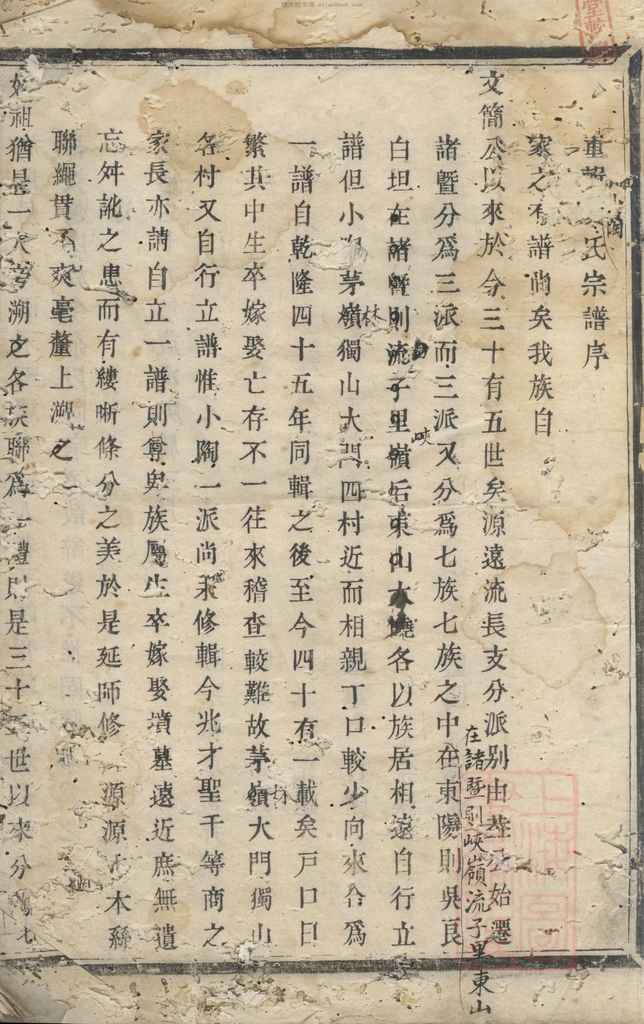 重 氏宗譜序
家之有譜尚矣我族自
文簡公以來於今三十有五世矣源遠流長支分派別由 公始遷
諸暨分爲三派而三派又分爲七族七族之中在東陽則吳良
在諸暨則峽嶺流子里東山
白坦在諸暨則流子里嶺后東山 各以族居相遠自行立
譜但小 茅嶺獨山大門四村近而相親丁口較少向來合爲
一譜自乾隆四十五年同輯之後至今四十有一載矣戶口日
繁其中生卒嫁娶亡存不一往來稽查較難故茅嶺大門獨山
各村又自行立譜惟小陶一派尚未修輯今兆才聖千等商之
家長亦請自立一譜則尊卑族屬生卒嫁娶墳墓遠近庶無遺
忘舛訛之患而有縷晰條分之美於是延師修 源源 木 繇
聯繩貫不爽毫釐上溯之
始祖猶是一 溯之各族聯爲一體則是三十 世以來分